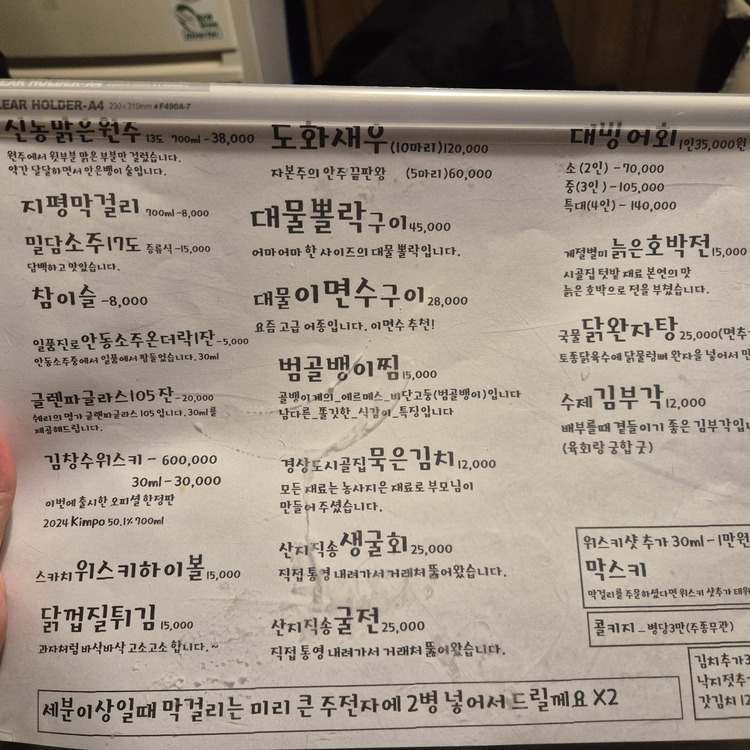 LEAR HOLDER-A4 230×310mm ●F490A-7
신농맑은원수 13도 700ml -38,000
원주에서 윗부분 맑은 부분만 걸렀습니다.
약간 달달하면서 안은뱅이 술입니다.
지평막걸리 700ml -8,000
밀담소주17도 증류식 -15,000
담백하고 맛있습니다.
참이슬 -8,000
일품진로안동소주온더락1잔 -5,000
안동소주중에서 일품에서 만들었습니다. 30ml
글렌파클라스105잔 -20,000
쉐리의 명가 글렌파클라스 105 입니다. 30ml를
제공해드립니다.
김창수위스키 - 600,000
30ml - 30,000
이번에 출시한 오피셜 한정판
2024 Kimpo 50.1% 700ml
스카치위스키하이볼 15,000
닭껍질튀김 15,000
과자처럼 바삭바삭 고소고소 합니다. ~
도화새우 (10마리)120,000
자본주의 안주 끝판왕 (5마리)60,000
대물뽈락구이 45,000
어마어마 한 사이즈의 대물 뽈락입니다.
대물이면수구이 28,000
요즘 고급 어종입니다. 이면수 추천!
범골뱅이찜 15,000
골뱅이계의_에르메스_비단고둥(범골뱅이)입니다
남다른_쫄깃한_식감이_특징입니다
경상도시골집묵은김치 12,000
모든 재료는 농사지은 재료로 부모님이
만들어 주셨습니다.
산지직송생굴회 25,000
직접 통영 내려가서 거래처 뚫어왔습니다.
산지직송굴전 25,000
직접 통영 내려가서 거래처 뚫어왔습니다.
대빙어회 1인35,000원
소 (2인) - 70,000
중(3인 ) - 105,000
특대(4인) - 140,000
계절별미 늙은호박전 15,000
시골집 텃밭 재료 본연의 맛
늙은 호박으로 전을 부쳤습니다.
국물 닭완자탕 25,000(면추
토종닭육수에 닭물렁뼈 완자을 넣어서 만
수제김부각 12,000
배부를때 곁들이기 좋은 김부각입니
(육회랑 궁합 굿)
위스키샷 추가 30ml - 1만원
막스키
막걸리를 주문하셨다면 위스키 샷추가
콜키지 _ 병당3만(주종무관)
김치추가3
낙지젓추
갓김치 12
세분이상일때 막걸리는 미리 큰 주전자에 2병 넣어서 드릴께요 X2